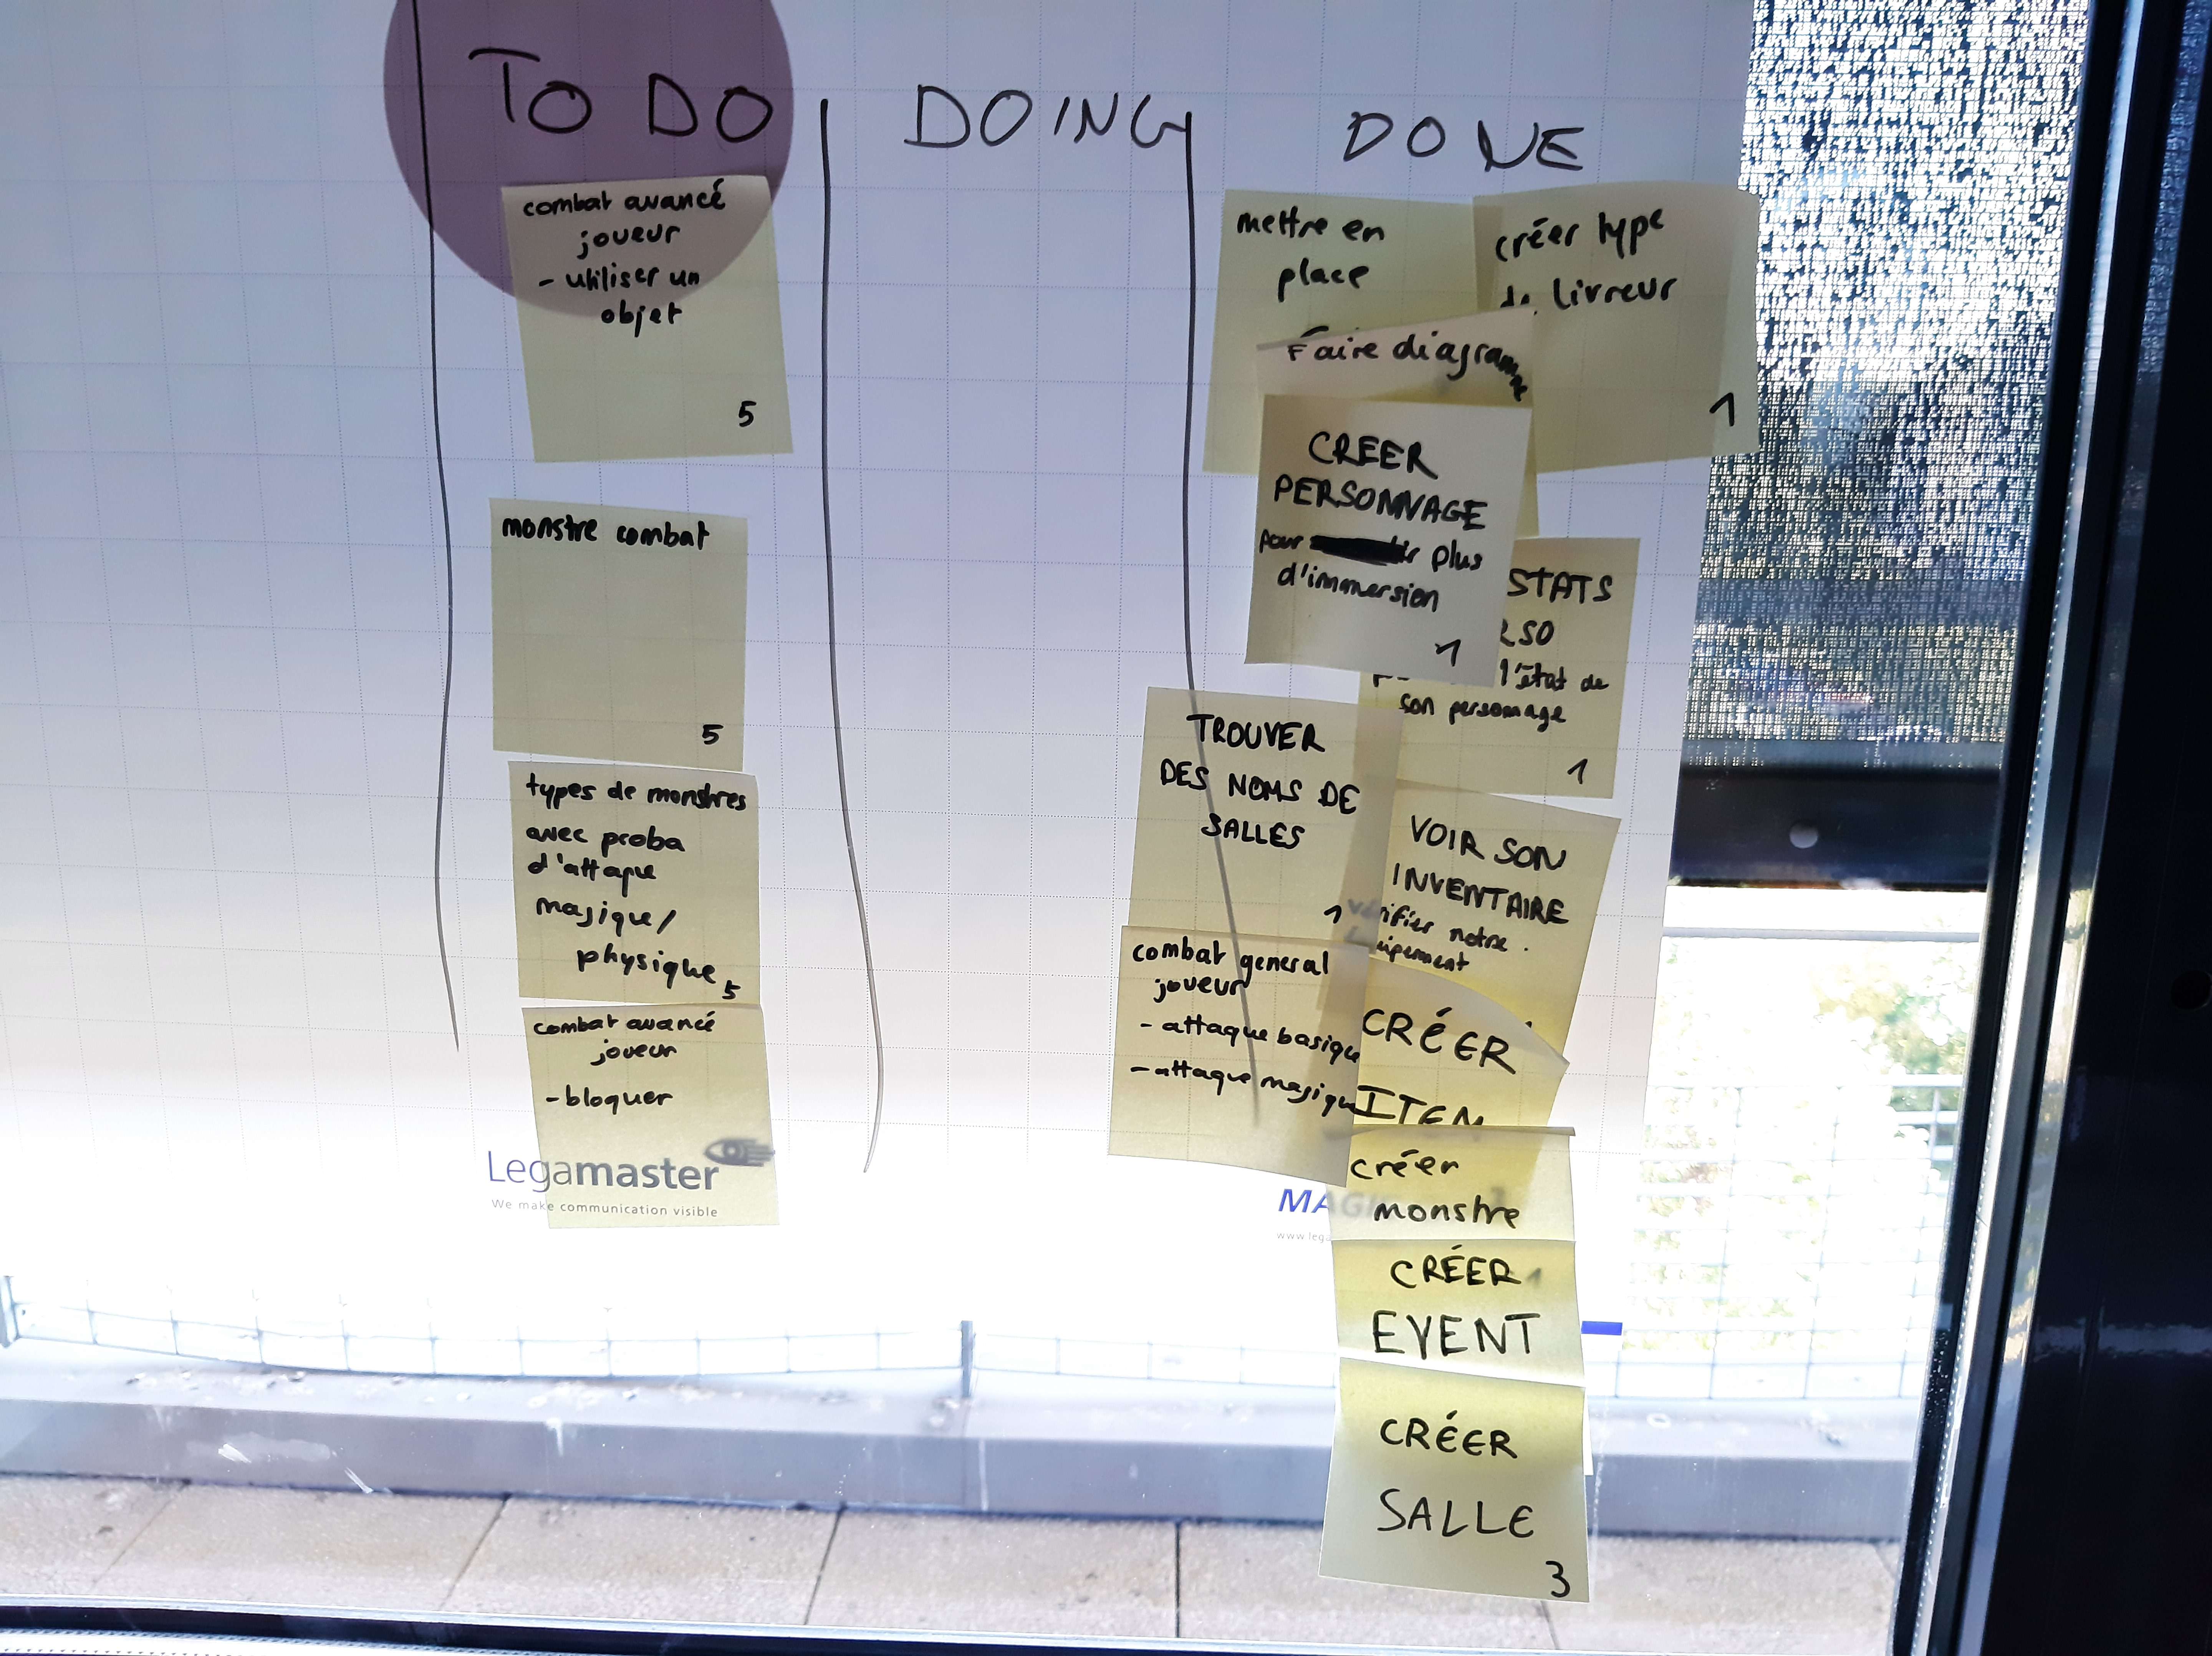 TO DO
DOING
DONE
combat avancé
joueur
- utiliser un
objet
5
monstre combat
5
types de monstres
avec proba
d'attaque
magique/
physique
5
combat avancé
joueur
- bloquer
Legamaster
We make communication visible
mettre en
place
créer type
livreur
1
Faire diagramme
CREER
PERSONNAGE
pour plus
d'immersion
1
STATS
l'état de
son personnage
1
TROUVER
DES NOMS DE
SALLES
1
VOIR SON
INVENTAIRE
vérifier notre
combat general
joueur
- attaque basique
- attaque magique
CRÉER
ITEM
créer
monstre
CRÉER
EVENT
CRÉER
SALLE
3